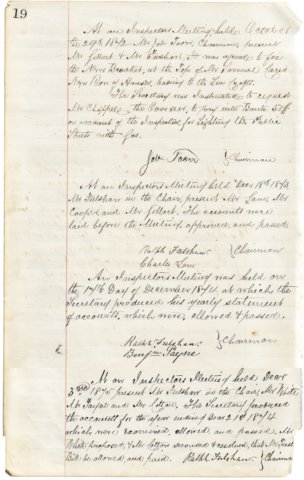 19
At an Inspectors Meeting held October
the 29th 1874 Mr Job Toon, Chairman present
Mr Gilbert & Mr Fulshaw. It was agreed to fix
the New Bracket, at the Top of Mr Samuel
New Row of Houses, leading to the
The Secretary was Instructed to request
Mr the Overseer, to pay into Bank 50£
on account of the Inspectors, for Lighting the Public
Streets with Gas.
Job Toon } Chairman
At an Inspectors Meeting held Decr 18th 1873
Mr Fulshaw in the Chair, present Mr Lane, Mr
Cooper and Mr Gilbert, The accounts were
laid before the Meeting, approved, and passed.
Ralph Fulshaw } Chairman
Charles Lane
An Inspectors Meeting was held on
the 17th Day of December 1874 at which the
Secretary produced his yearly statement
of accounts, which were, allowed & passed.
Ralph Fulshaw } Chairman
Benjn Payne
At an Inspectors Meeting held Decr
3rd 1875 present Mr Fulshaw in the Chair, Mr White,
Mr and Mr The Secretary produced
the accounts for the year ending Decr 21st 1874
which were examined, allowed and passed, Mr
White proposed, & Mr seconded & resolved, that Mr
Bill be allowed and paid. Ralph Fulshaw } Chairman